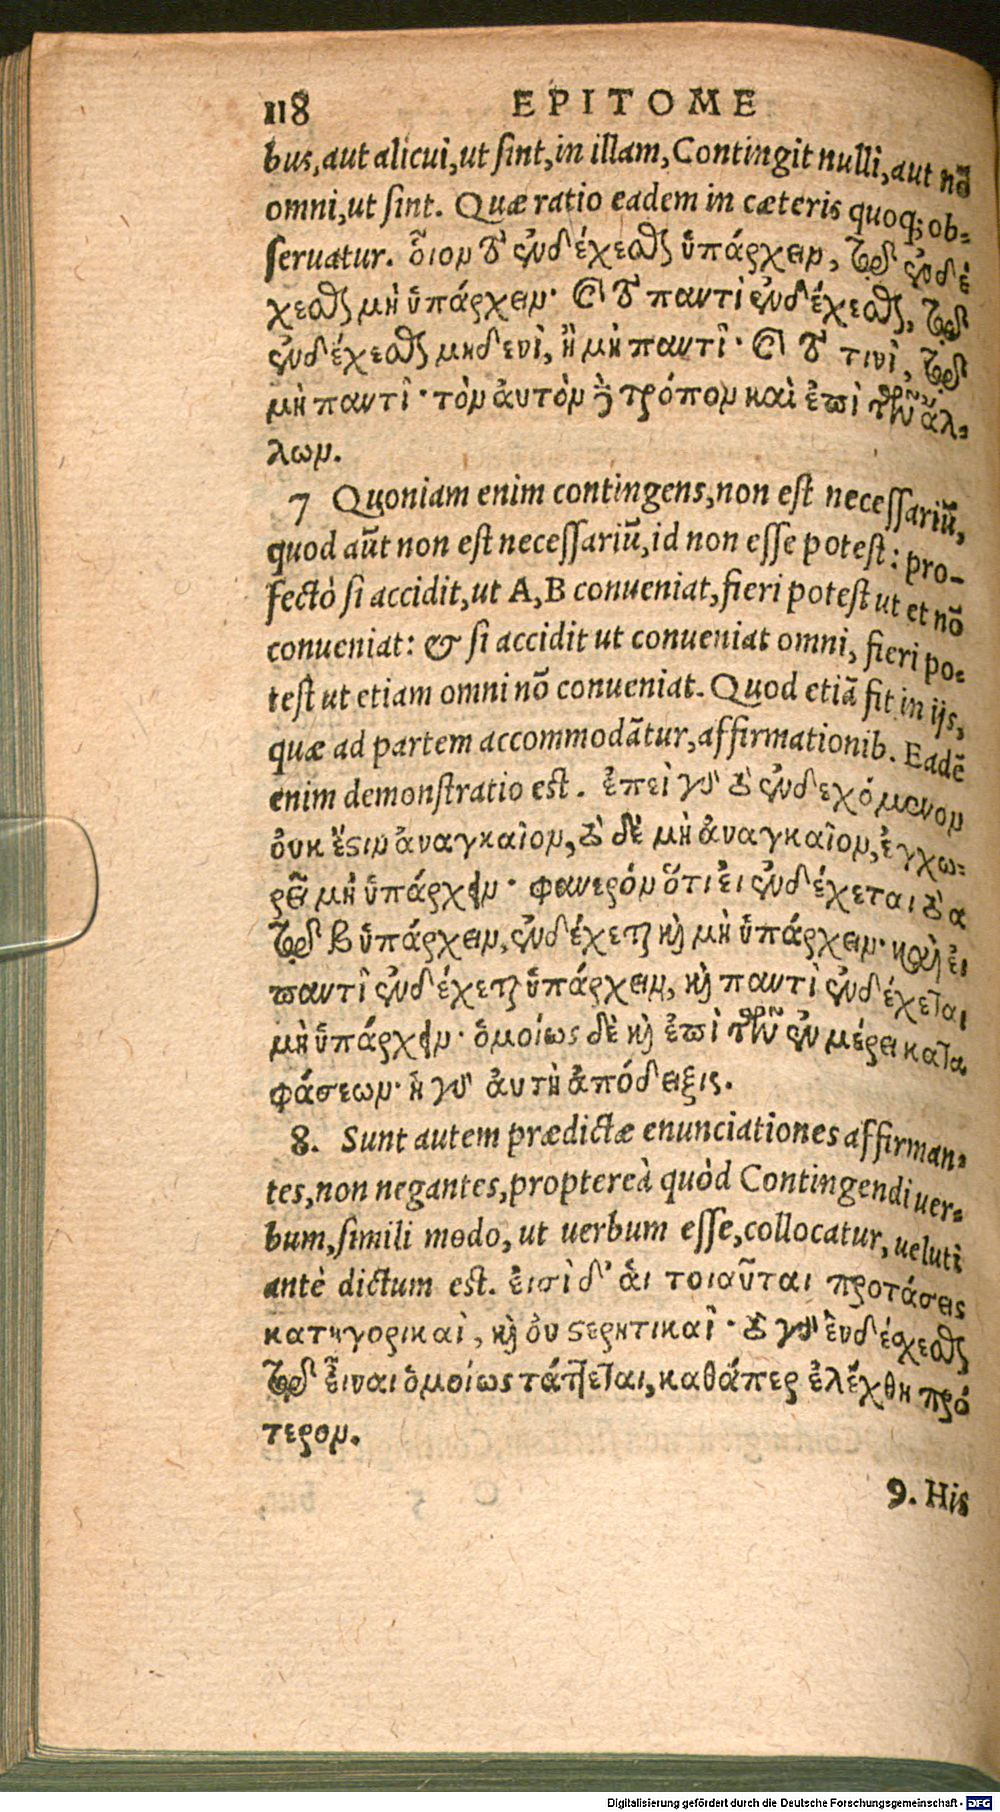 118 EPITOME
bus, aut alicui, ut sint, in illam, Contingit nulli, aut nõ
omni, ut sint. Quæ ratio eadem in cæteris quoq; ob-
seruatur. ὅιον τὸ ἐνδέχεσθαι ὑπάρχειν, τῷ ἐνδέ
χεσθαι μὴ ὑπάρχειν· καὶ τὸ παντὶ ἐνδέχεσθαι, τῷ
ἐνδέχεσθαι μηδενὶ, ἢ μὴ παντὶ· καὶ τὸ τινὶ, τῷ
μὴ παντὶ· τὸν ἀυτὸν δὲ τρόπον καὶ ἐπὶ τῶν ἄλ-
λων.
7 Quoniam enim contingens, non est necessariũ,
quod aũt non est necessariũ, id non esse potest: pro-
fectò si accidit, ut A, B conueniat, fieri potest ut et nõ
conueniat: & si accidit ut conueniat omni, fieri po-
test ut etiam omni nõ conueniat. Quod etiã fit in ijs,
quæ ad partem accommodãtur, affirmationib. Eadẽ
enim demonstratio est. ἐπεὶ γὰρ τὸ ἐνδεχόμενον
ὀυκ ἔστιν ἀναγκαῖον, τὸ δὲ μὴ ἀναγκαῖον, ἐγχω-
ρεῖ μὴ ὑπάρχειν· φανερόν ὅτι ἐι ἐνδέχεται τὸ α
τῷ β ὑπάρχειν, ἐνδέχεται καὶ μὴ ὑπάρχειν· καὶ ἐι
παντὶ ἐνδέχεται ὑπάρχειν, καὶ παντὶ ἐνδέχεται
μὴ ὑπάρχειν· ὁμοίως δὲ καὶ ἐπὶ τῶν ἐν μέρει κατα
φάσεων· ἡ γὰρ ἀυτὴ ἀπόδειξις.
8. Sunt autem prædictæ enunciationes affirman-
tes, non negantes, proptereà quòd Contingendi uer-
bum, simili modo, ut uerbum esse, collocatur, ueluti
antè dictum est. ἐισὶ δ' ἁι τοιαῦται προτάσεις
κατηγορικαὶ, καὶ ὀυ στερητικαὶ· τὸ γὰρ ἐνδέχεσθαι
τῷ ἐιναι ὁμοίως τάττεται, καθάπερ ἐλέχθη πρό
τερον.
9. His
Digitalisierung gefördert durch die Deutsche Forschungsgemeinschaft - DFG